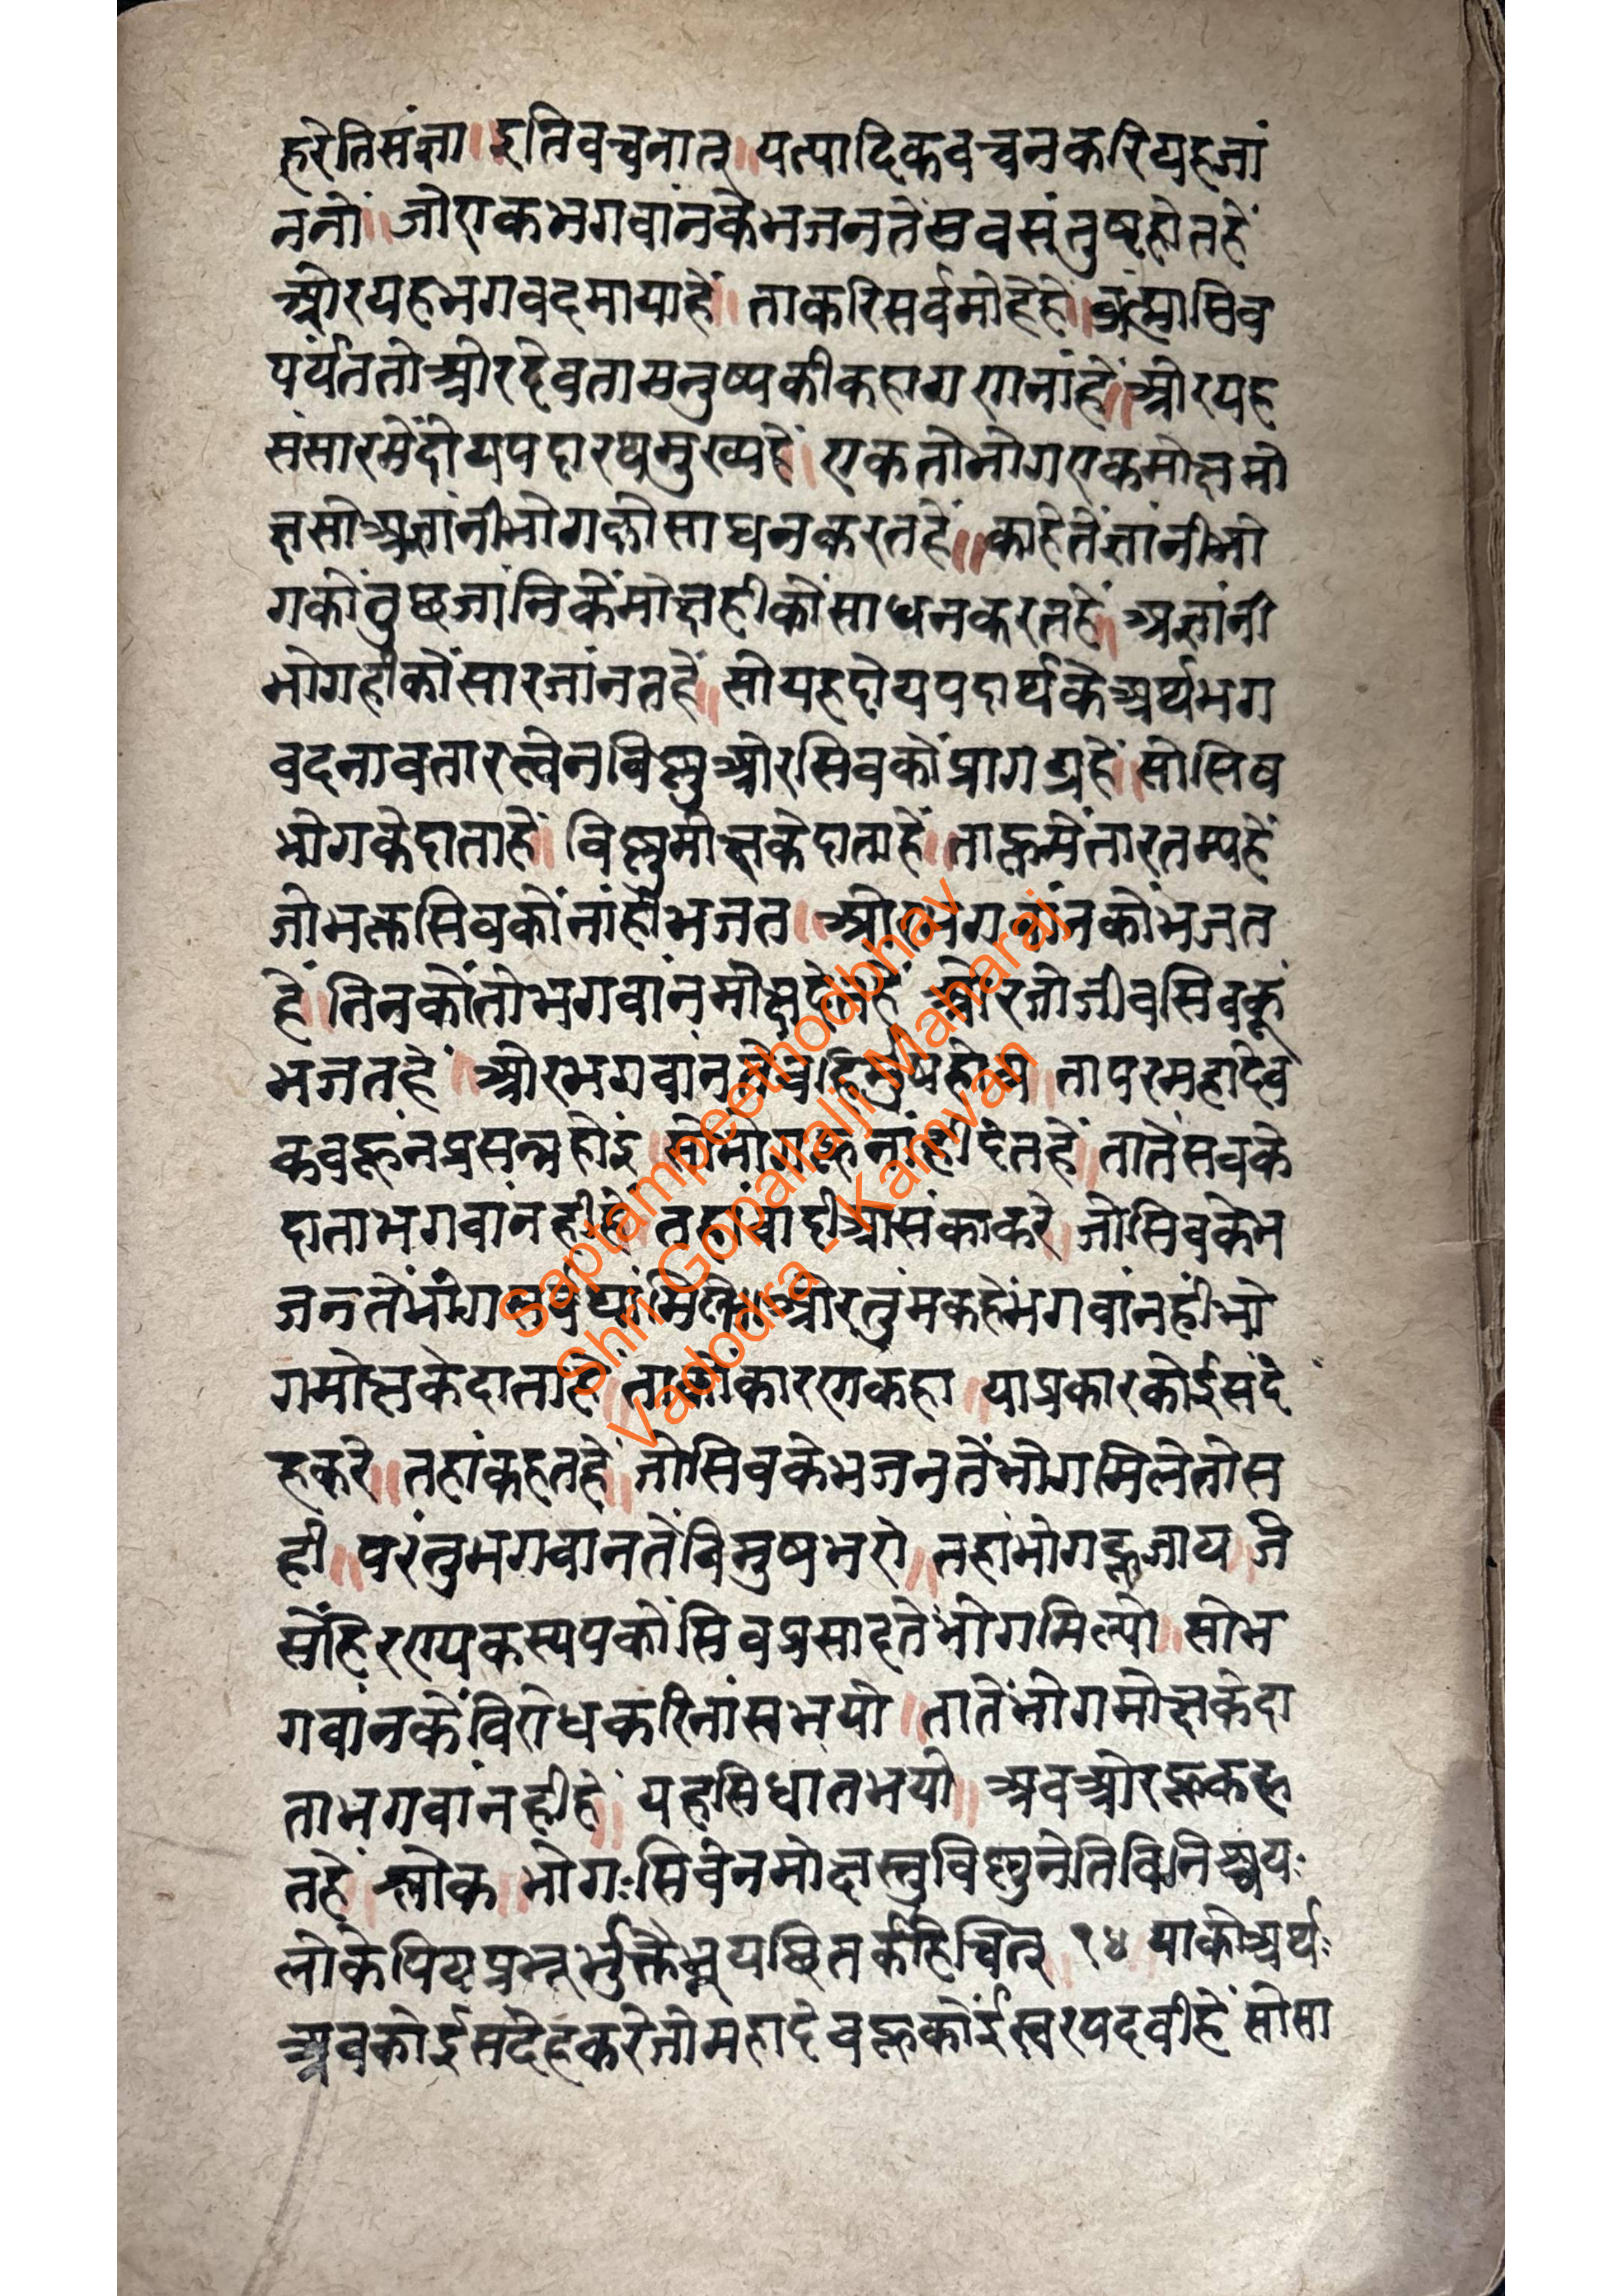 हरेतिसंज्ञा॥इतिवचनात्॥यत्यादिकवचनकरियहजां
ननों॥जोएकभगवांनकेभजनतेंसवसंतुष्टहोतहें
ओरयहभगवदमायाहें॥ताकरिसर्वमोहेहे॥ब्रह्मासिव
पर्यंततोओरदेवतामनुष्यकीकहागणनांहें॥ओरयह
संसारमेंदोयपदारथमुख्यहें॥एकतोभोगएकमोक्षमो
क्षसोअज्ञांनीभोगकोसाधनकरतहें॥काहेतेंज्ञांनीभो
गकोंतुछजांनिकेंमोक्षहीकोंसाधनकरतहें॥अज्ञांनी
भोगहीकोंसारजांनतहें॥सोयहदोयपदार्थकेअर्थभग
वदनावतारत्वेनविष्णुओरसिवकोंप्रागट्यहें॥सोसिव
भोगकेदाताहें॥विष्णुमोक्षकेदाताहें॥ताहूमेंतारतम्यहें
जोभक्तसिवकोंनांहीभजत॥ओरभगवांनकोंभजत
हें॥तिनकोंतोभगवांनमोक्षदेतहें ओरजोजीवसिवकूं
भजतहें॥ओरभगवांनतेंबहिर्मुषहोय॥तापरमहादेव
कवहूंनप्रसन्नहोइ॥सोभोगहूनांहीदेतहें॥तातेंसवके
दाताभगवांनहीहें॥तहांवादीआसंकाकरे॥जोसिवकेभ
जनतेंभोगसर्वथामिले॥ओरतुंमकहेंभगवांनहींभो
गमोक्षकेदाताहें॥ताकोंकारणकहा॥याप्रकारकोईसंदे
हकरे॥तहांकहतहें॥जोसिवकेभजनतेंभोगमिलेतोस
ही॥परंतुभगवानतेंविमुषभए॥तहांभोगहूजाय॥जे
सेंहिरण्यकस्यपकोंसिवप्रसादतेंभोगमिल्यो॥सोभ
गवांनकेंविरोधकरिनासभयो॥तातेंभोगमोक्षकेदा
ताभगवांनहीहें॥यहसिधातभयो॥अवओरहूकह
तहें॥श्लोक॥भोगःसिवेनमोक्षस्तुविष्णुनेतिविनिश्चयः
लोकेपियप्रभूर्भुक्तेभूयछितर्कहिचित् १४ याकोअर्थः
अवकोईसंदेहकरेजोमहादेवहूकोंईस्वरपदवीहें॥सोसा